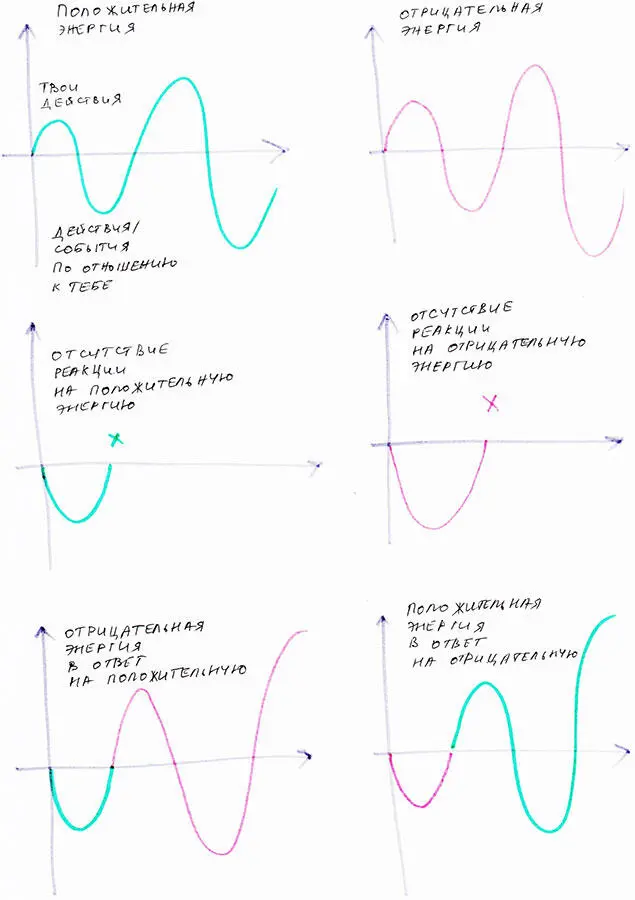 ПОЛОЖИТЕЛЬНАЯ
ЭНЕРГИЯ
ТВОИ
ДЕЙСТВИЯ
ДЕЙСТВИЯ/
СОБЫТИЯ
ПО ОТНОШЕНИЮ
К ТЕБЕ
ОТРИЦАТЕЛЬНАЯ
ЭНЕРГИЯ
ОТСУТСТВИЕ
РЕАКЦИИ
НА ПОЛОЖИТЕЛЬНУЮ
ЭНЕРГИЮ
ОТСУТСТВИЕ
РЕАКЦИИ
НА ОТРИЦАТЕЛЬНУЮ
ЭНЕРГИЮ
ОТРИЦАТЕЛЬНАЯ
ЭНЕРГИЯ
В ОТВЕТ
НА ПОЛОЖИТЕЛЬНУЮ
ПОЛОЖИТЕЛЬНАЯ
ЭНЕРГИЯ
В ОТВЕТ
НА ОТРИЦАТЕЛЬНУЮ